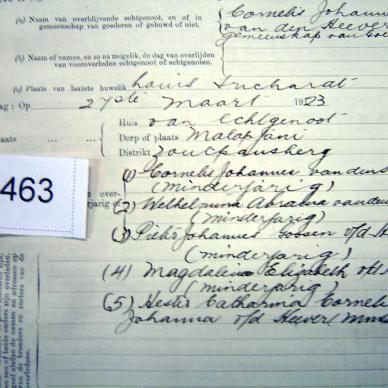 Cornelis Johannes
(a) Naam van overblijvende echtgenoot, en of in
gemeenschap van goederen of gehuwd of niet.
van den Heever
gemeenschap van Goe
(b) Naam of namen, en zo na mogelik, de dag van overlijden
van vooroverleden echtgenoot of echtgenoten.
(c) Plaats van laatste huwelik Louis Trichardt
ag: Op 27ste Maart 1923
Huis van Echtgenoot
aats Dorp of plaats Malapfani
Distrikt Zoutpansberg
(1) Cornelis Johannes van den
(minderjarig)
463
over-
arig of
(2) Welhelmina Adriana van den
(minderjarig)
(3) Pieter Johannes Goosen v/d H
(minderjarig)
(4) Magdalena Elizabeth v/d
(minderjarig)
(5) Hester Catharina Corneli
Johanna v/d Heever (min